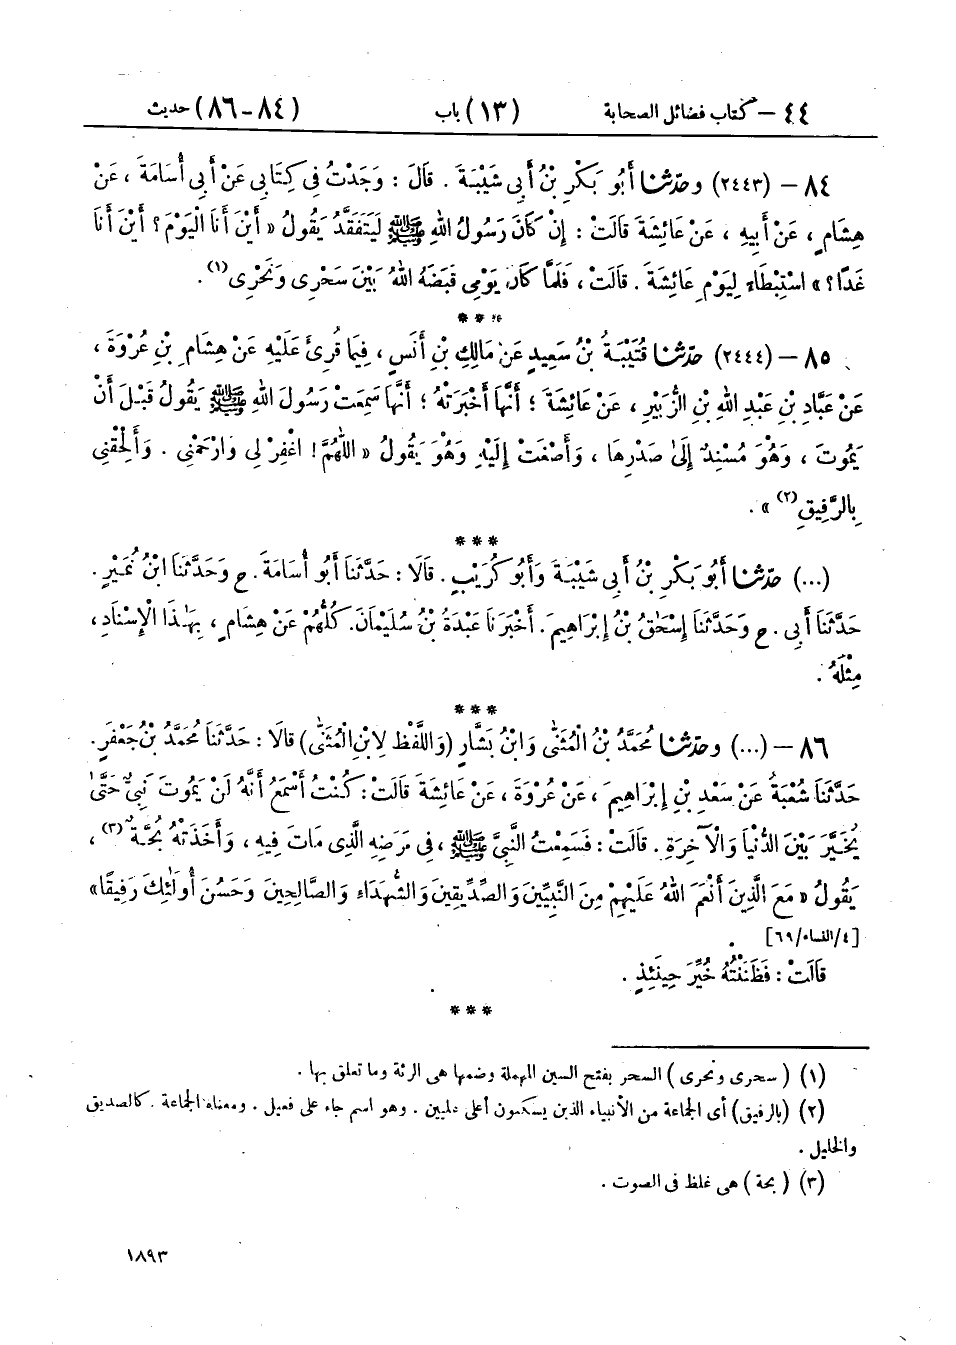 ٤٤ – كتاب فضائل الصحابة (١٣) باب (٨٤-٨٦) حديث
٨٤ – (٢٤٤٣) وحدّثنا أَبُو بَكْرِ بْنُ أَبِي شَيْبَةَ . قَالَ : وَجَدْتُ فِي كِتَابِي عَنْ أَبِي أُسَامَةَ ، عَنْ
هِشَامٍ ، عَنْ أَبِيهِ ، عَنْ عَائِشَةَ قَالَتْ : إِنْ كَانَ رَسُولُ اللهِ ﷺ لَيَتَفَقَّدُ يَقُولُ « أَيْنَ أَنَا الْيَوْمَ ؟ أَيْنَ أَنَا
غَدًا ؟ » اسْتِبْطَاءً لِيَوْمِ عَائِشَةَ . قَالَتْ ، فَلَمَّا كَانَ يَوْمِي قَبَضَهُ اللهُ بَيْنَ سَحْرِي وَنَحْرِي(١) .
***
٨٥ – (٢٤٤٤) حدّثنا قُتَيْبَةُ بْنُ سَعِيدٍ عَنْ مَالِكِ بْنِ أَنَسٍ ، فِيمَا قُرِئَ عَلَيْهِ عَنْ هِشَامِ بْنِ عُرْوَةَ ،
عَنْ عَبَّادِ بْنِ عَبْدِ اللهِ بْنِ الزُّبَيْرِ ، عَنْ عَائِشَةَ ؛ أَنَّهَا أَخْبَرَتْهُ ؛ أَنَّهَا سَمِعَتْ رَسُولَ اللهِ ﷺ يَقُولُ قَبْلَ أَنْ
يَمُوتَ ، وَهُوَ مُسْنِدٌ إِلَىٰ صَدْرِهَا ، وَأَصْغَتْ إِلَيْهِ وَهُوَ يَقُولُ « اللّٰهُمَّ ! اغْفِرْ لِي وَارْحَمْنِي . وَأَلْحِقْنِي
بِالرَّفِيقِ(٢) » .
***
(...) حدّثنا أَبُو بَكْرِ بْنُ أَبِي شَيْبَةَ وَأَبُو كُرَيْبٍ . قَالَا : حَدَّثَنَا أَبُو أُسَامَةَ . ح وَحَدَّثَنَا ابْنُ نُمَيْرٍ .
حَدَّثَنَا أَبِي . ح وَحَدَّثَنَا إِسْحَٰقُ بْنُ إِبْرَاهِيمَ . أَخْبَرَنَا عَبْدَةُ بْنُ سُلَيْمَانَ . كُلُّهُمْ عَنْ هِشَامٍ ، بِهَٰذَا الْإِسْنَادِ ،
مِثْلَهُ .
***
٨٦ – (...) وحدّثنا مُحَمَّدُ بْنُ الْمُثَنَّىٰ وَابْنُ بَشَّارٍ (وَاللَّفْظُ لِابْنِ الْمُثَنَّىٰ) قَالَا : حَدَّثَنَا مُحَمَّدُ بْنُ جَعْفَرٍ .
حَدَّثَنَا شُعْبَةُ عَنْ سَعْدِ بْنِ إِبْرَاهِيمَ ، عَنْ عُرْوَةَ ، عَنْ عَائِشَةَ قَالَتْ : كُنْتُ أَسْمَعُ أَنَّهُ لَنْ يَمُوتَ نَبِيٌّ حَتَّىٰ
يُخَيَّرَ بَيْنَ الدُّنْيَا وَالْآخِرَةِ . قَالَتْ : فَسَمِعْتُ النَّبِيَّ ﷺ ، فِي مَرَضِهِ الَّذِي مَاتَ فِيهِ ، وَأَخَذَتْهُ بُحَّةٌ(٣) ،
يَقُولُ « مَعَ الَّذِينَ أَنْعَمَ اللهُ عَلَيْهِمْ مِنَ النَّبِيِّينَ وَالصِّدِّيقِينَ وَالشُّهَدَاءِ وَالصَّالِحِينَ وَحَسُنَ أُولَٰئِكَ رَفِيقًا»
[٤/النساء/٦٩] .
قَالَتْ : فَظَنَنْتُهُ خُيِّرَ حِينَئِذٍ .
***
(١) (سحرى ونحرى) السحر بفتح السين المهملة وضمها هى الرئة وما تعلق بها .
(٢) (بالرفيق) أى الجماعة من الأنبياء الذين يسكنون أعلى عليين . وهو اسم جاء على فعيل . ومعناه الجماعة . كالصديق
والخليل .
(٣) (بحة) هى غلظ فى الصوت .
١٨٩٣